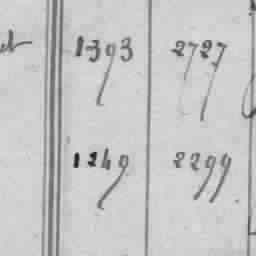 1393 2727
1249 2299